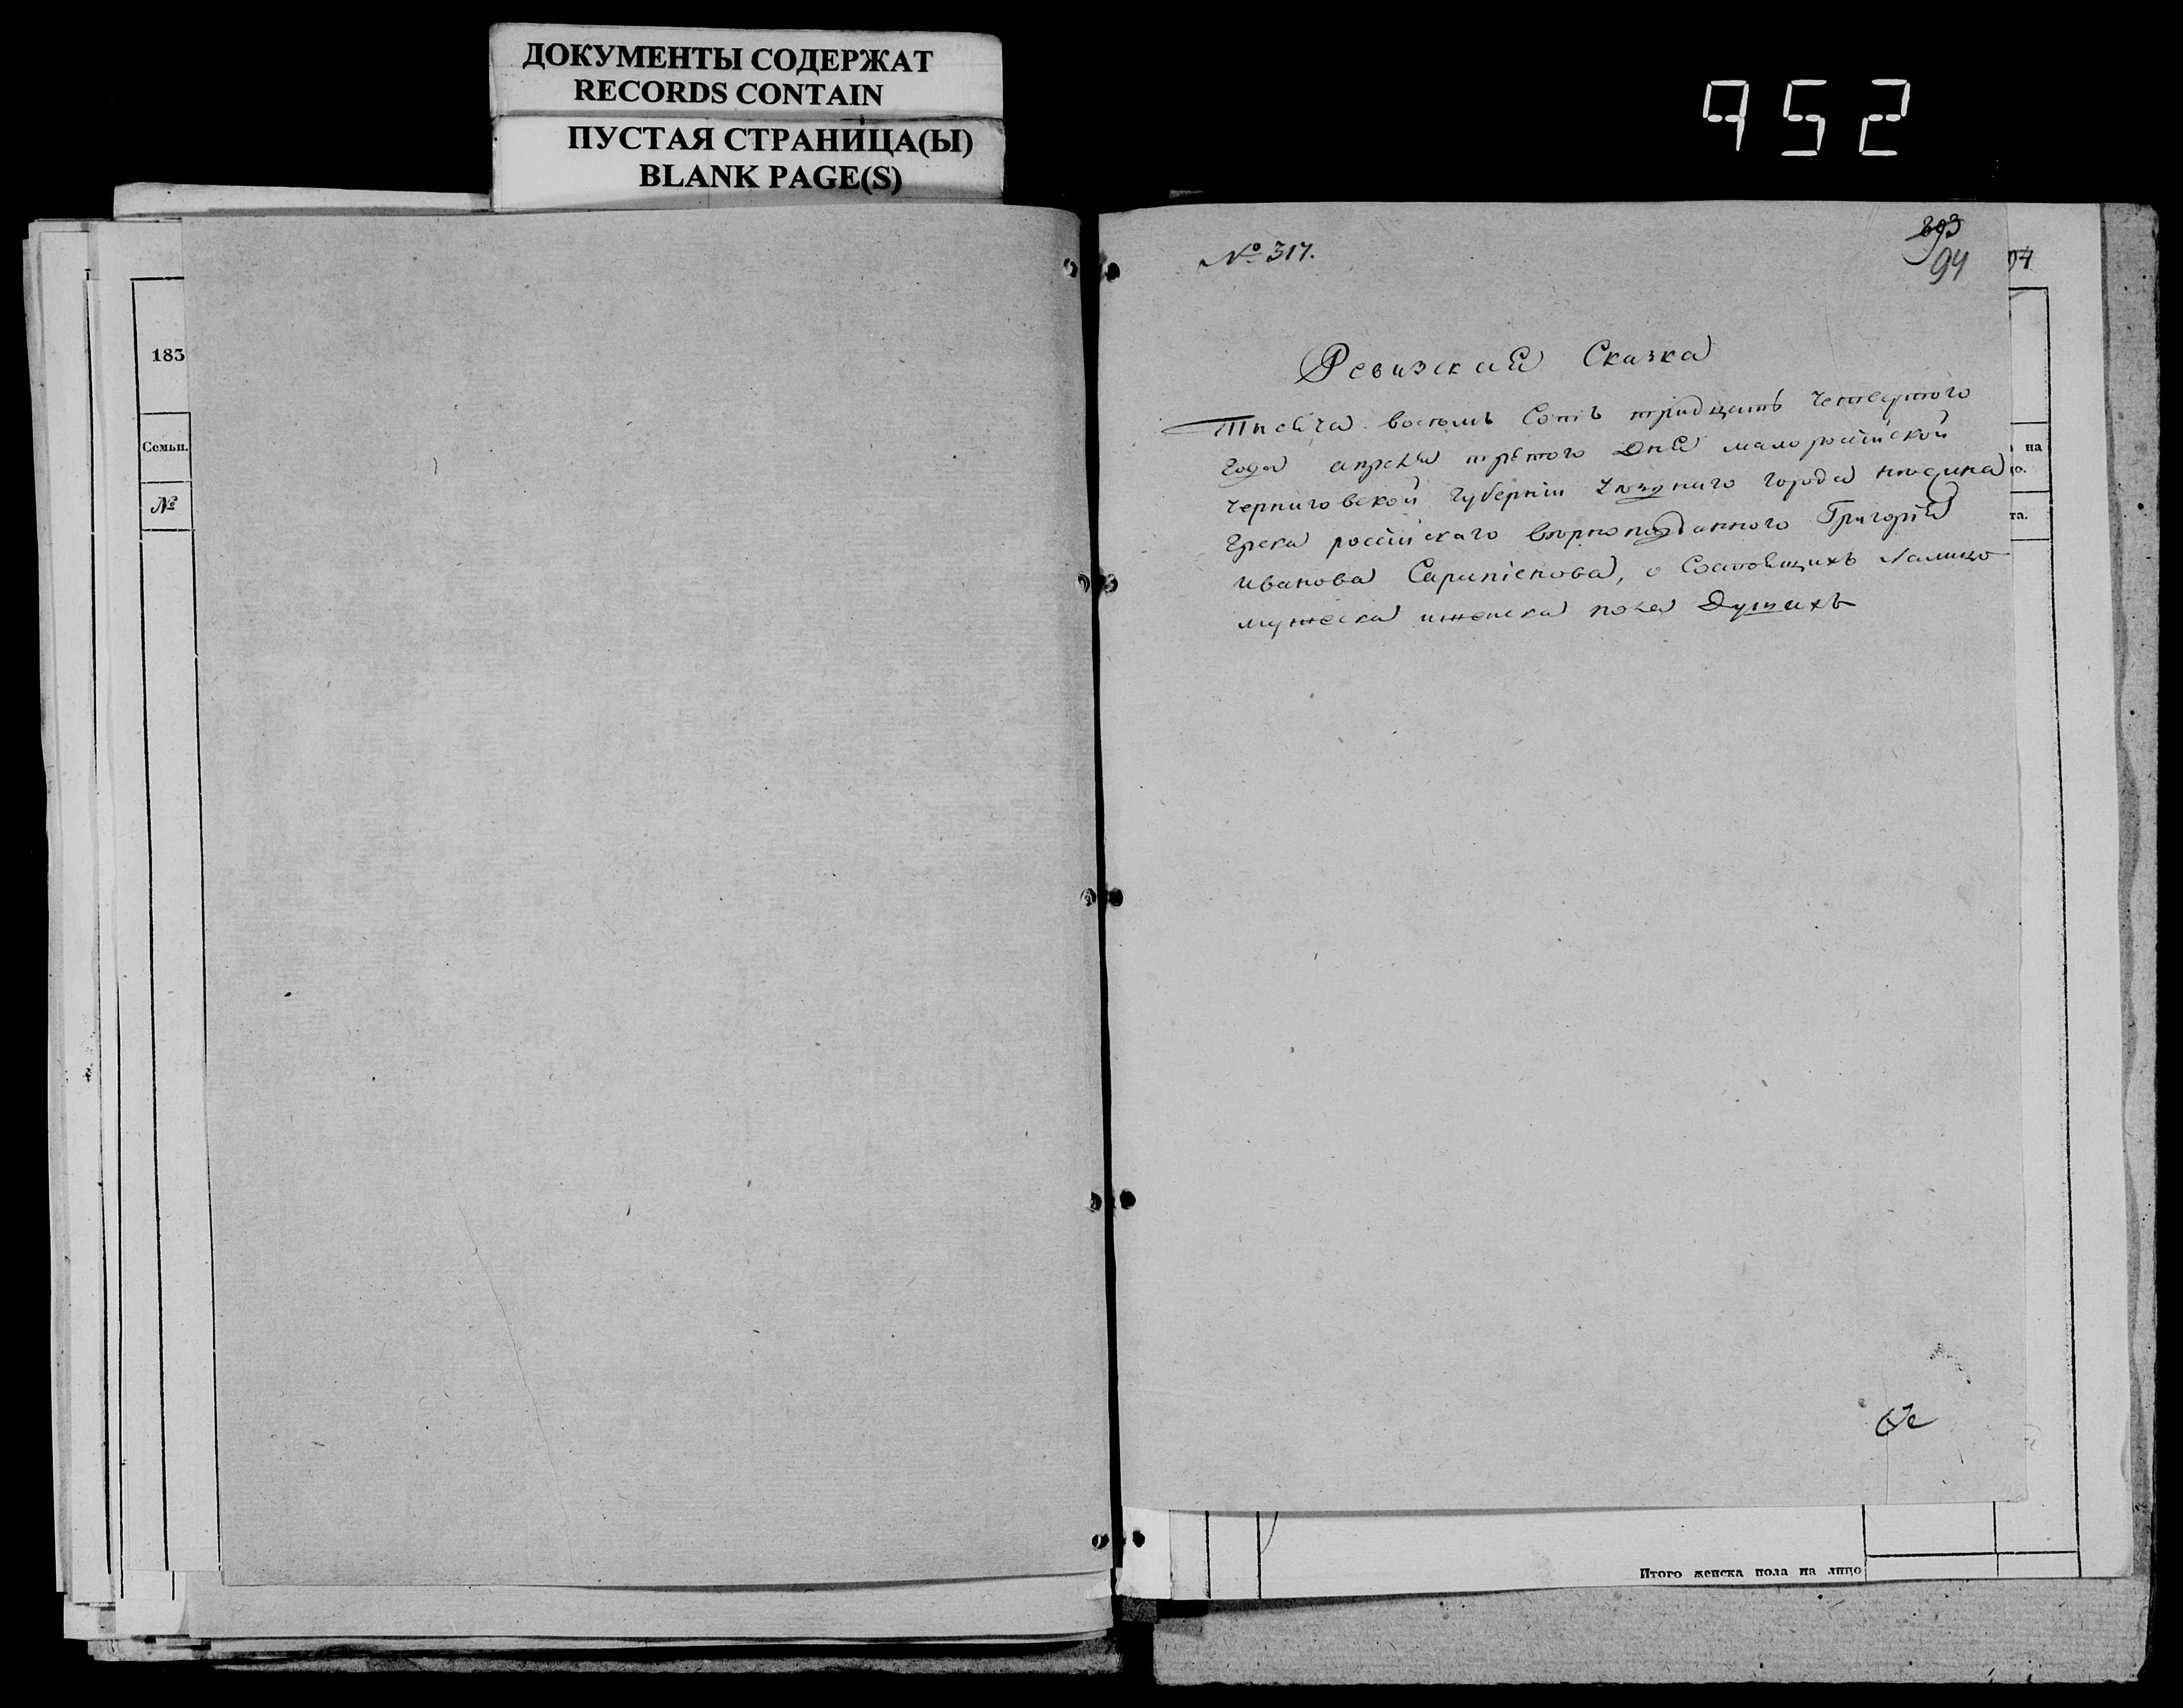 ДОКУМЕНТЫ СОДЕРЖАТ
RECORDS CONTAIN
ПУСТАЯ СТРАНИЦА(Ы)
BLANK PAGE(S)
952
183
Семьи.
№
№ 317.
94
Ревизская Сказка
Тысяча восемь Сотъ тридцать четвертого
года апреля третого Дня малоросійской
черниговской губерніи уезднаго города нюжина
Грека російскаго вернопо_данного Григорія
Иванова Сарипіенова, о Состоящихъ Налицо
мужеска иженска пола Душахъ
на
о.
та.
Итого женска пола на лицо